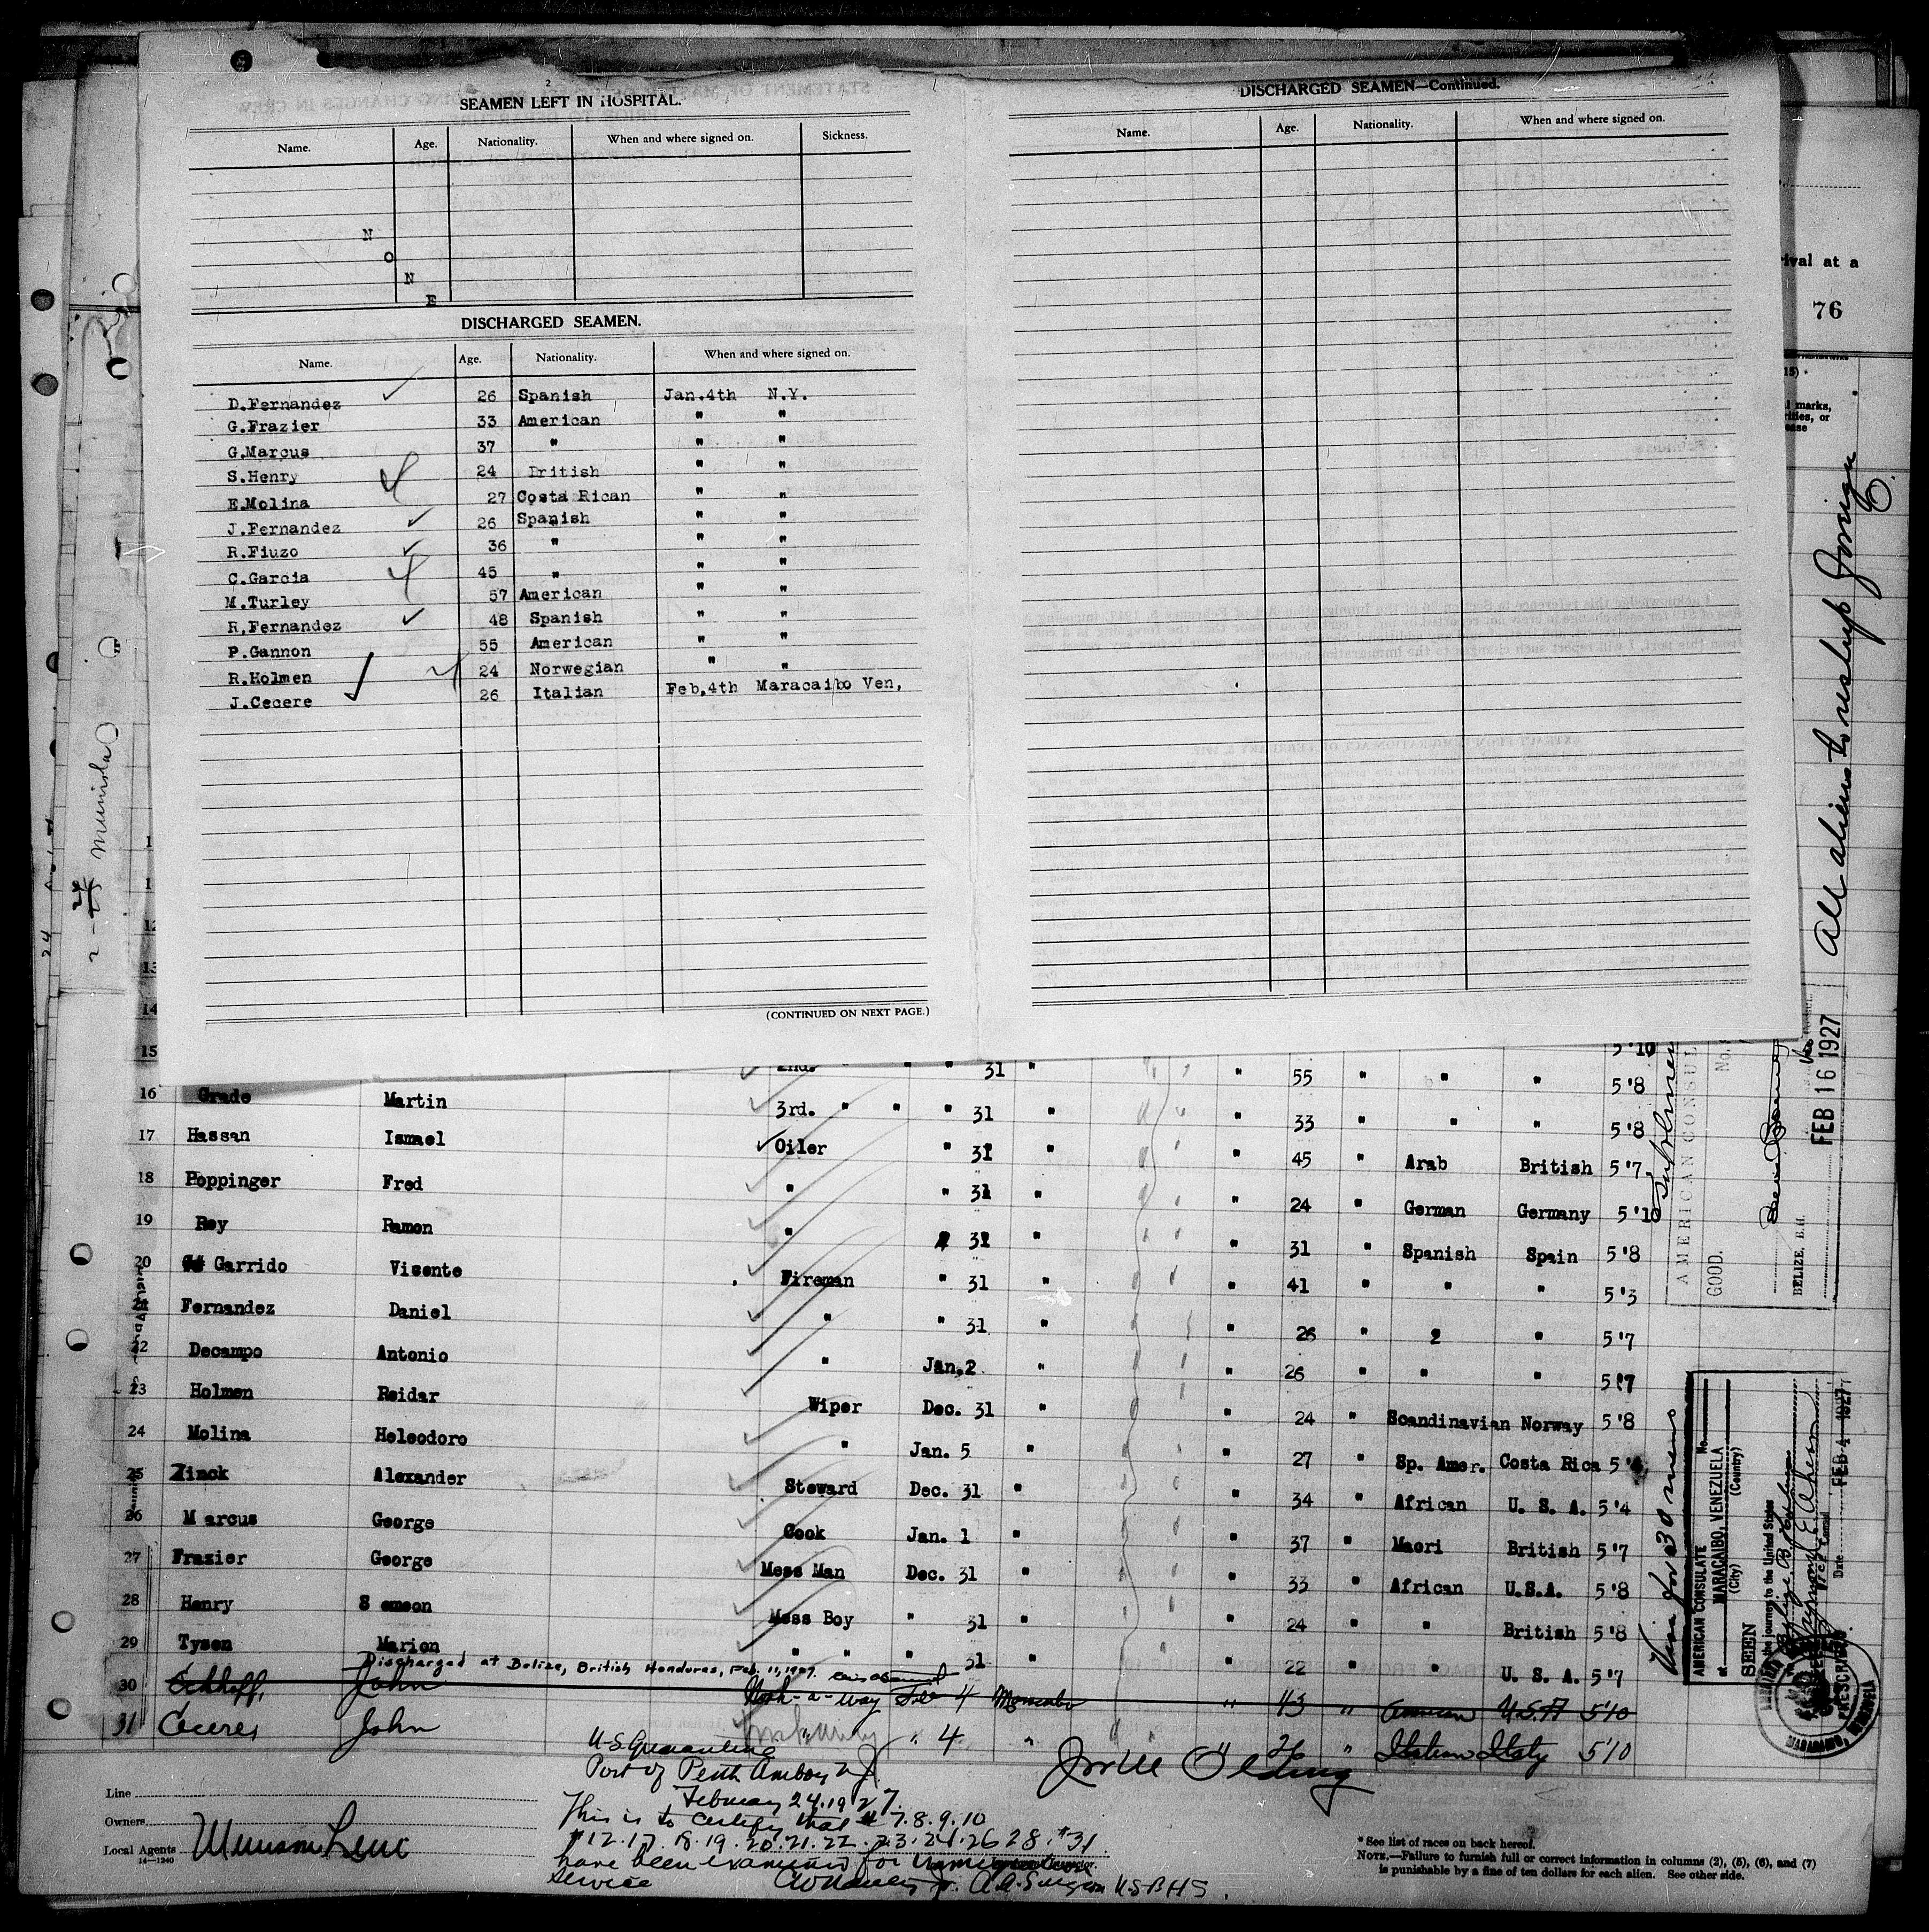 2
SEAMEN LEFT IN HOSPITAL.
Name. Age. Nationality. When and where signed on. Sickness.
N
O
N
E
DISCHARGED SEAMEN.
Name. Age. Nationality. When and where signed on.
D.Fernandez 26 Spanish Jan.4th N.Y.
G.Frazier 33 American " "
G.Marcus 37 " " "
S.Henry 24 British " "
E.Molina 27 Costa Rican " "
J.Fernandez 26 Spanish " "
R.Fiuzo 36 " " "
C.Garcia 45 " " "
M.Turley 57 American " "
R.Fernandez 48 Spanish " "
P.Gannon 55 American " "
R.Holmen 24 Norwegian " "
J.Cecere 26 Italian Feb.4th Maracaibo Ven,
(CONTINUED ON NEXT PAGE.)
DISCHARGED SEAMEN—Continued.
Name. Age. Nationality. When and where signed on.
rival at a
76
marks,
or
All aliens to reship foreign
13
14
15 5'10
2nd. " " " 31 " " 55 " " " 5'8
16 Grade Martin 3rd. " " " 31 " " 33 " " " 5'8
17 Hassan Ismael Oiler " 31 " " 45 " Arab British 5'7
18 Poppinger Fred " " 31 " " 24 " German Germany 5'10
19 Rey Ramon " 31 " " 31 " Spanish Spain 5'8
20 Garrido Visente Fireman " 31 " " 41 " " " 5'3
21 Fernandez Daniel " " 31 " " 26 " 2 " 5'7
22 Decampo Antonio " Jan.2 " " 26 " " " 5'7
23 Holmen Reidar Wiper Dec. 31 " " 24 " Scandinavian Norway 5'8
24 Molina Heleodoro " Jan. 5 " " 27 " Sp. Amer. Costa Rica 5'
25 Zinck Alexander Steward Dec. 31 " " 34 " African U. S. A. 5'4
26 Marcus George Cook Jan. 1 " " 37 " Maori British 5'7
27 Frazier George Mess Man Dec. 31 " " 33 " African U.S.A. 5'8
28 Henry Samson Mess Boy " 31 " " 24 " " British 5'8
29 Tysen Marion " " " 31 " 22 " " U. S. A. 5'7
Discharged at Belize, British Honduras, Feb. 11, 1927.
30 Eckhoff, John Work-a-way Feb 4 Maracaibo " 43 " American U.S.A 5'10
31 Cecere, John " " 4 " " 26 " Italian Italy 5'10
AMERICAN CONSUL
No.
GOOD.
BELIZE, B.H.
FEB 16 1927
Visa for 30 mens
AMERICAN CONSULATE No.
at MARACAIBO, VENEZUELA
(City) (Country)
SEEN
the journey to the United States
Vice Consul
Date FEB 4 1927
Line
Owners
Local Agents
14—1240
U.S. Quarantine
Port of Perth Amboy N.J.
February 24. 1927.
This is to certify that # 7. 8. 9. 10
# 12. 17. 18. 19. 20. 21. 22. 23. 24. 26 28. #31
have been examined for Immigration
service
A. A. Surgeon U.S.P.H.S.
* See list of races on back hereof.
NOTE.—Failure to furnish full or correct information in columns (2), (5), (6), and (7)
is punishable by a fine of ten dollars for each alien. See other side.